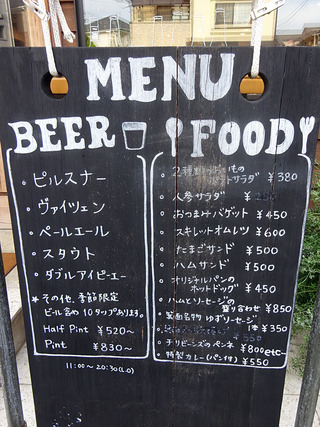 MENU
BEER
・ピルスナー
・ヴァイツェン
・ペールエール
・スタウト
・ダブルアイピーエー
★その他、季節限定
ビール含め10タップあります。
Half Pint ¥520~
Pint ¥830~
11:00~20:30(L.O)
FOOD
サラダ ¥380
・人参サラダ ¥
・おつまみバゲット ¥450
・スキレットオムレツ ¥600
・たまごサンド ¥500
・ハムサンド ¥500
・オリジナルパンの
ホットドッグ ¥450
・ハムとソーセージの
盛り合わせ ¥850
・箕面名物ゆずソーセージ
1本 ¥350
・チリビーンズのペンネ ¥800 etc~
・特製カレー(パン付) ¥550